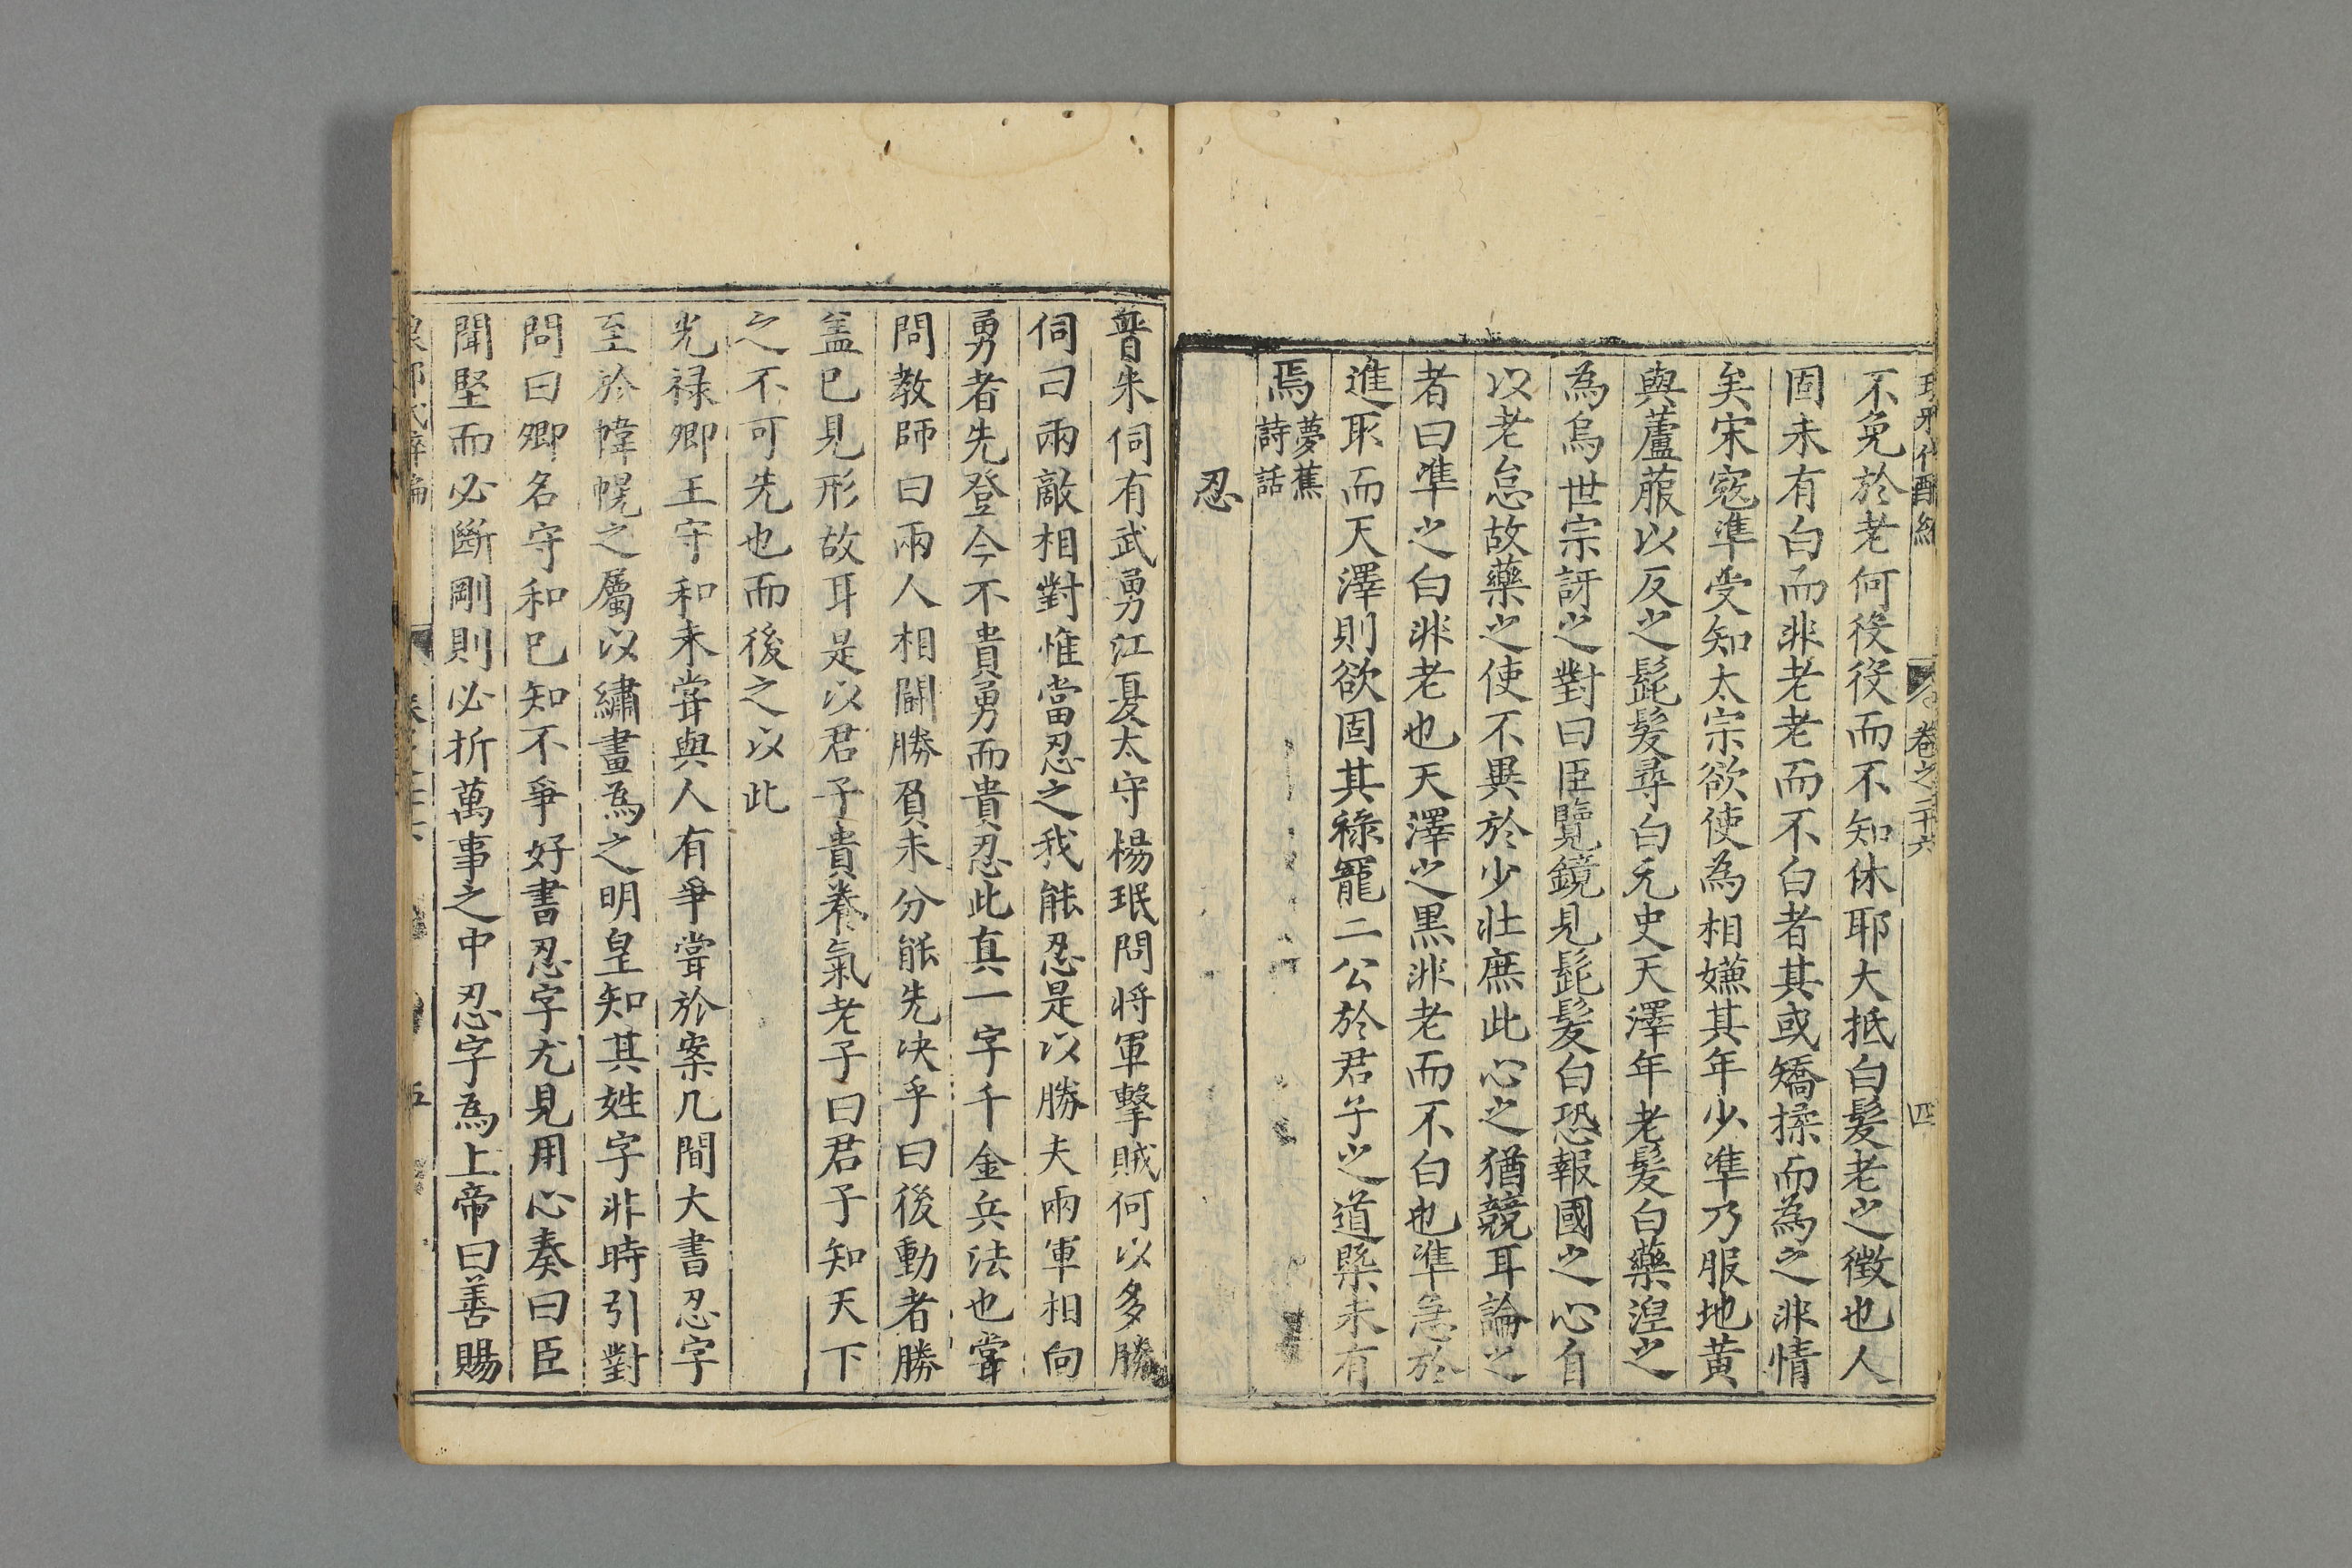 琅邪代醉編 卷之二十六 四
不免於老何役役而不知休耶大抵白髪老之徵也人
固未有白而非老老而不白者其或矯揉而為之非情
矣宋宼凖受知太宗欲使為相嫌其年少凖乃服地黃
與蘆菔以反之髭髪尋白元史天澤年老髪白藥湼之
為烏世宗訝之對曰臣覽鏡見髭髪白恐報國之心自
以老怠故藥之使不異於少壯庶此心之猶競耳論之
者曰凖之白非老也天澤之黒非老而不白也凖急於
進取而天澤則欲固其祿寵二公於君子之道槩未有
焉夢蕉詩話
忍
晉朱伺有武勇江夏太守楊珉問将軍擊賊何以多勝
伺曰兩敵相對惟當忍之我能忍是以勝夫兩軍相向
勇者先登今不貴勇而貴忍此真一字千金兵法也甞
問教師曰兩人相鬭勝負未分能先决乎曰後動者勝
盖已見形故耳是以君子貴養氣老子曰君子知天下
之不可先也而後之以此
光禄卿王守和未甞與人有爭甞於案几間大書忍字
至於幃幌之屬以繡畫為之明皇知其姓字非時引對
問曰卿名守和已知不爭好書忍字尤見用心奏曰臣
聞堅而必斷剛則必折萬事之中忍字為上帝曰善賜
五